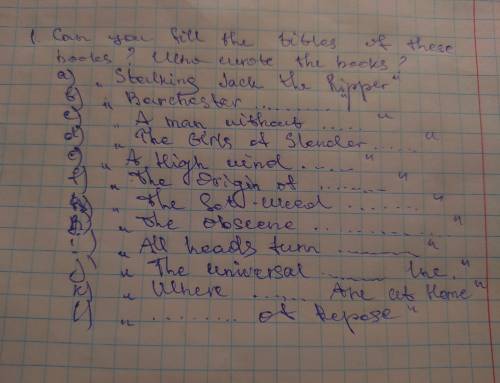 1. Can you fill the titles of these
books? Who wrote the books?
a) "Stalking Jack the Ripper"
b) "Barchester ............"
c) "A man without ....."
d) "The Girls of Slender ....."
e) "A High wind ....."
f) "The Origin of ........"
g) "The Sot-weed ........"
h) "The Obscene ............"
i) "All heads turn ........"
j) "The universal ....... Inc."
k) "Where ...... Are at Home"
l) "......... of Repose"